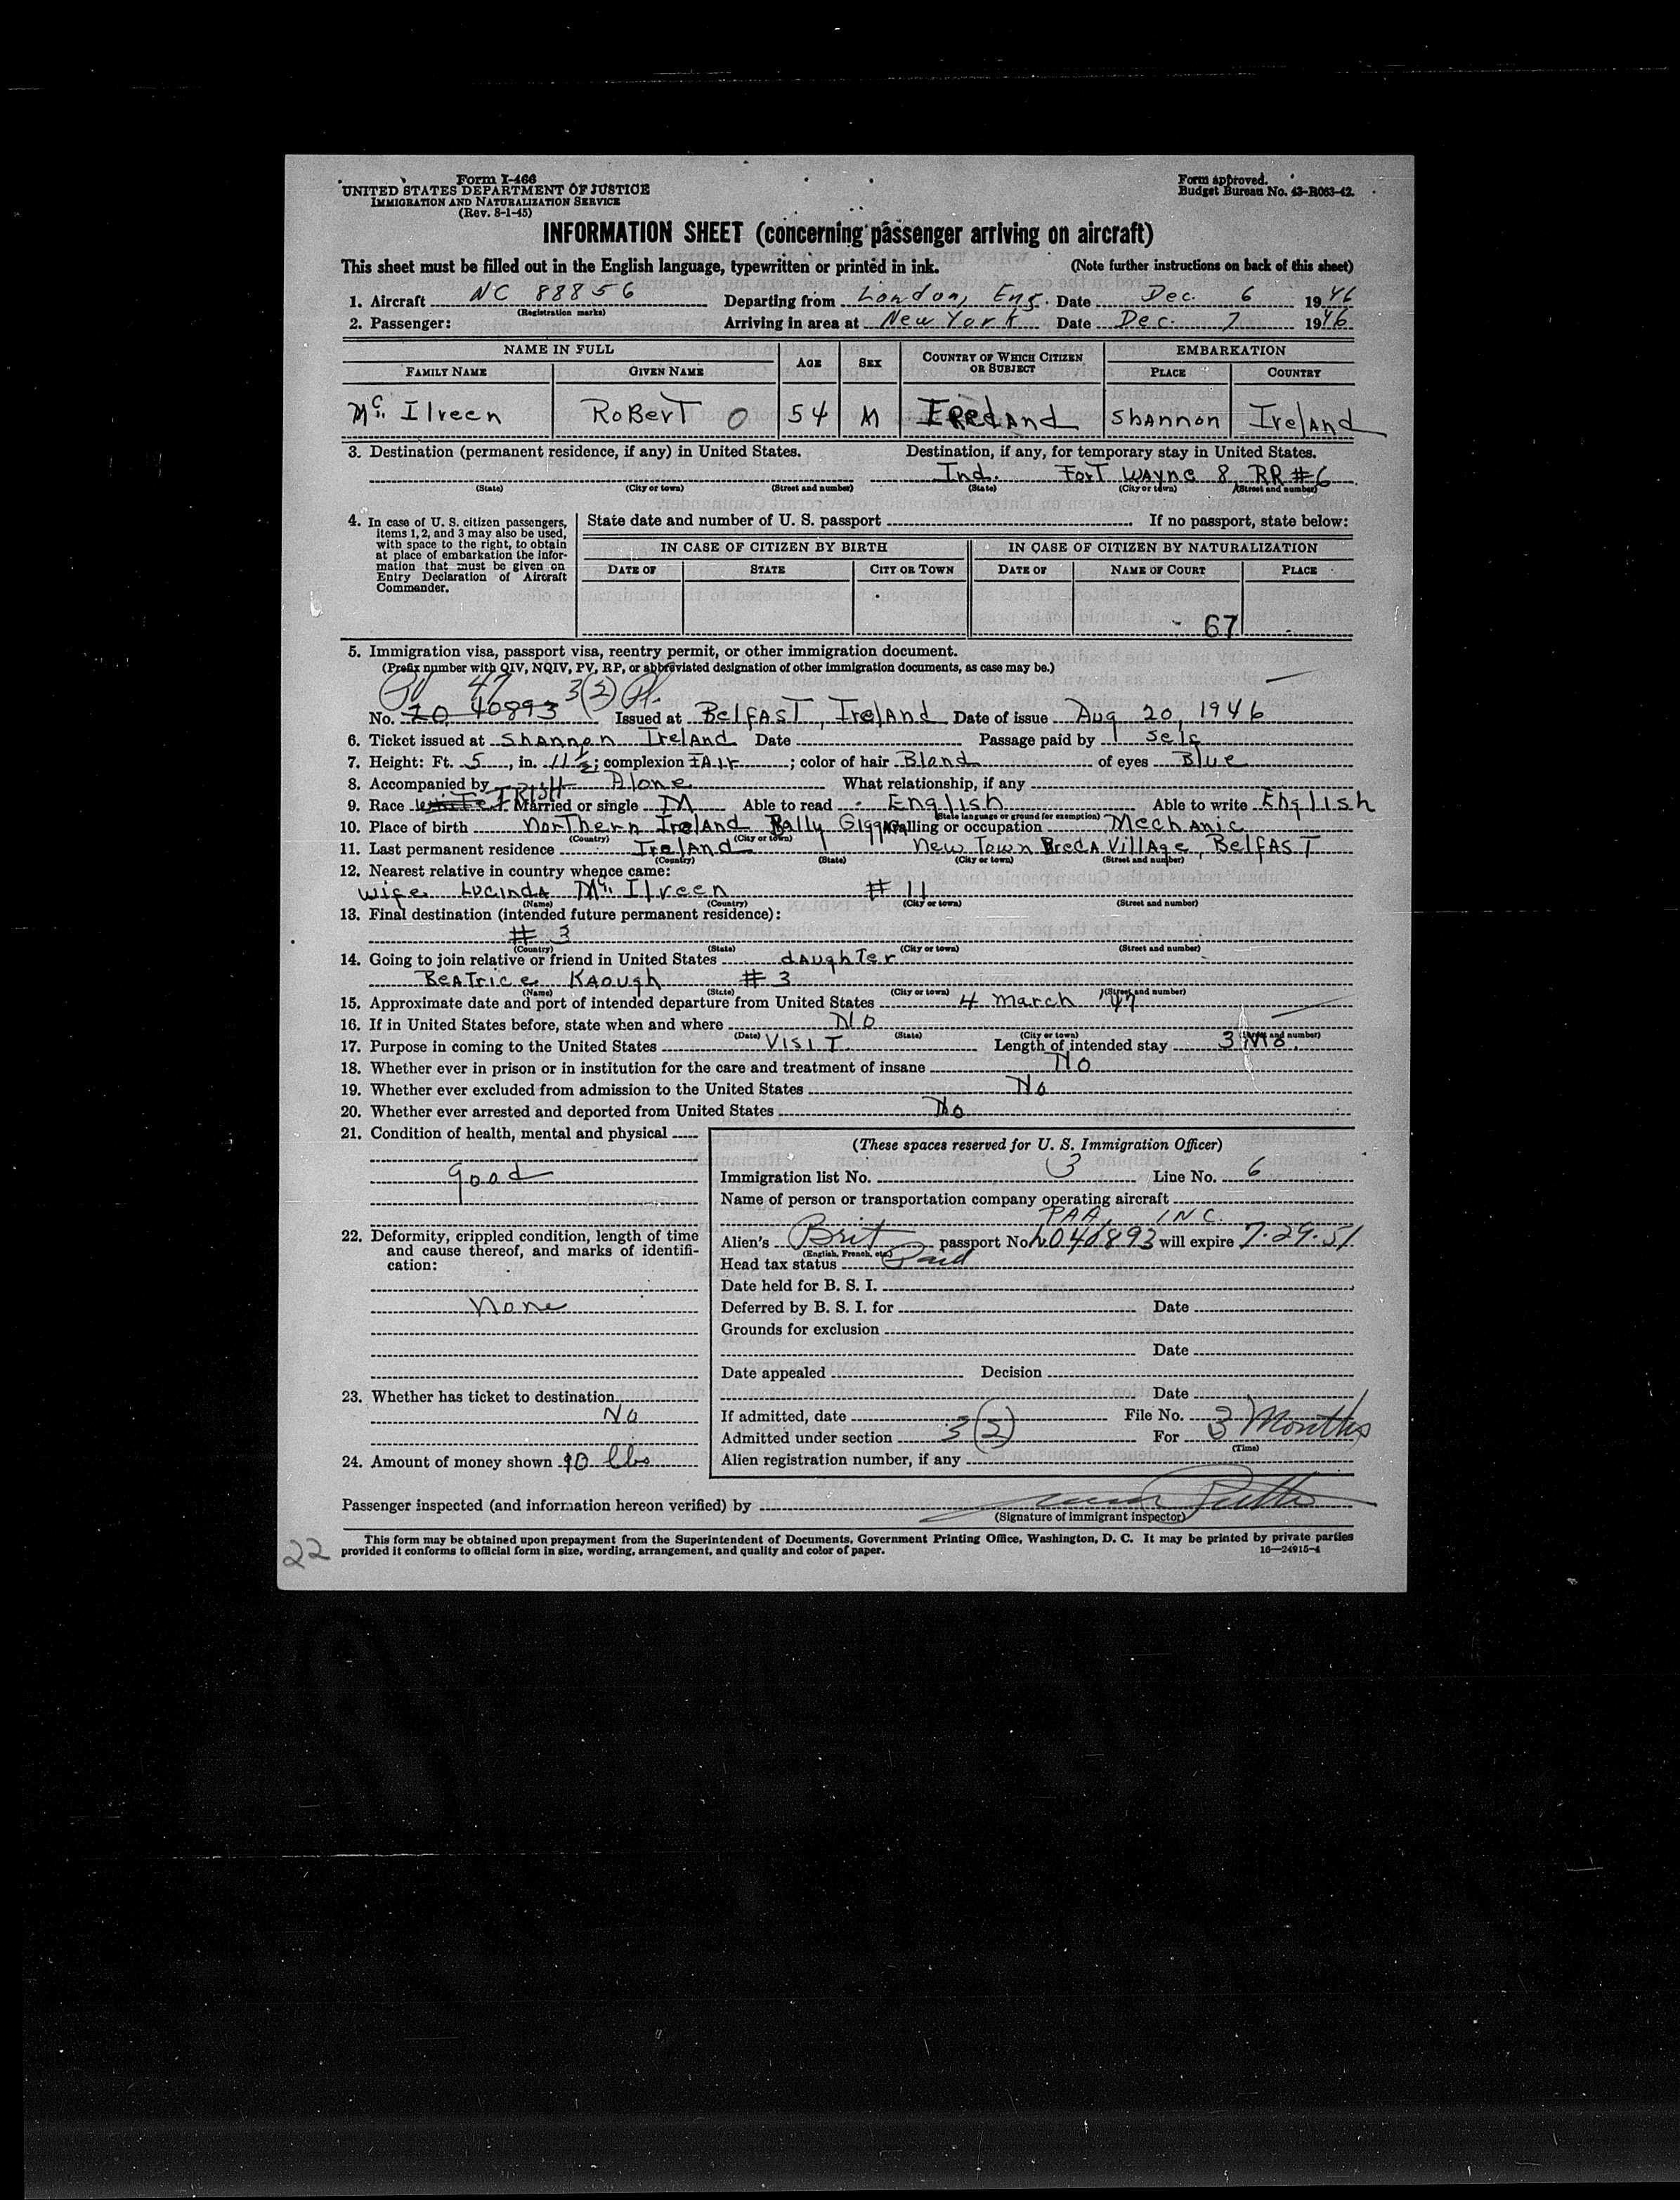 Form I-466
UNITED STATES DEPARTMENT OF JUSTICE
IMMIGRATION AND NATURALIZATION SERVICE
(Rev. 8-1-45)
Form approved.
Budget Bureau No. 43-R063-42.
INFORMATION SHEET (concerning passenger arriving on aircraft)
This sheet must be filled out in the English language, typewritten or printed in ink. (Note further instructions on back of this sheet)
1. Aircraft NC 88856 Departing from London, Eng. Date Dec. 6 1946
(Registration marks)
2. Passenger: Arriving in area at New York Date Dec. 7 1946
NAME IN FULL AGE SEX COUNTRY OF WHICH CITIZEN OR SUBJECT EMBARKATION
FAMILY NAME GIVEN NAME PLACE COUNTRY
Mc Ilveen RoBerT O 54 M IReLANd ShANNon IrelANd
3. Destination (permanent residence, if any) in United States. Destination, if any, for temporary stay in United States.
Ind. ForT WAyne 8, RR #6
(State) (City or town) (Street and number) (State) (City or town) (Street and number)
4. In case of U. S. citizen passengers, items 1, 2, and 3 may also be used, with space to the right, to obtain at place of embarkation the information that must be given on Entry Declaration of Aircraft Commander.
State date and number of U. S. passport If no passport, state below:
IN CASE OF CITIZEN BY BIRTH IN CASE OF CITIZEN BY NATURALIZATION
DATE OF STATE CITY OR TOWN DATE OF NAME OF COURT PLACE
67
5. Immigration visa, passport visa, reentry permit, or other immigration document.
(Prefix number with QIV, NQIV, PV, RP, or abbreviated designation of other immigration documents, as case may be.)
PV 47 3(2)
No. 20 40893 Issued at BelfAST, IrelANd Date of issue Aug 20, 1946
6. Ticket issued at ShANNon IrelANd Date Passage paid by Self
7. Height: Ft. 5, in. 11½; complexion FAir; color of hair Blond of eyes Blue
8. Accompanied by Alone What relationship, if any
9. Race White IRISH Married or single M Able to read English Able to write English
(State language or ground for exemption)
10. Place of birth NorThern IrelANd Bally Calling or occupation MechANic
(Country) (City or town)
11. Last permanent residence IrelANd New Town BredA VillAge, BelfAST
(Country) (State) (City or town) (Street and number)
12. Nearest relative in country whence came:
wife LucindA Mc Ilveen # 11
(Name) (Country) (City or town) (Street and number)
13. Final destination (intended future permanent residence):
# 3
(Country) (State) (City or town) (Street and number)
14. Going to join relative or friend in United States dAughTer
BeATrice KAough # 3
(Name) (State) (City or town) (Street and number)
15. Approximate date and port of intended departure from United States 4 March '47
16. If in United States before, state when and where No
(Date) (State) (City or town) (Street and number)
17. Purpose in coming to the United States VISIT Length of intended stay 3 Mo.
18. Whether ever in prison or in institution for the care and treatment of insane No
19. Whether ever excluded from admission to the United States No
20. Whether ever arrested and deported from United States No
21. Condition of health, mental and physical
good
22. Deformity, crippled condition, length of time and cause thereof, and marks of identification:
None
23. Whether has ticket to destination
No
24. Amount of money shown 10 lbs
(These spaces reserved for U. S. Immigration Officer)
Immigration list No. 3 Line No. 6
Name of person or transportation company operating aircraft
PAA, INC.
Alien's Brit passport No. 2040893 will expire 7-29-51
(English, French, etc.)
Head tax status Paid
Date held for B. S. I.
Deferred by B. S. I. for Date
Grounds for exclusion
Date
Date appealed Decision
Date
If admitted, date File No.
Admitted under section 3(2) For 3 Months
(Time)
Alien registration number, if any
Passenger inspected (and information hereon verified) by
(Signature of immigrant inspector)
22
This form may be obtained upon prepayment from the Superintendent of Documents, Government Printing Office, Washington, D. C. It may be printed by private parties
provided it conforms to official form in size, wording, arrangement, and quality and color of paper. 16—24915-4